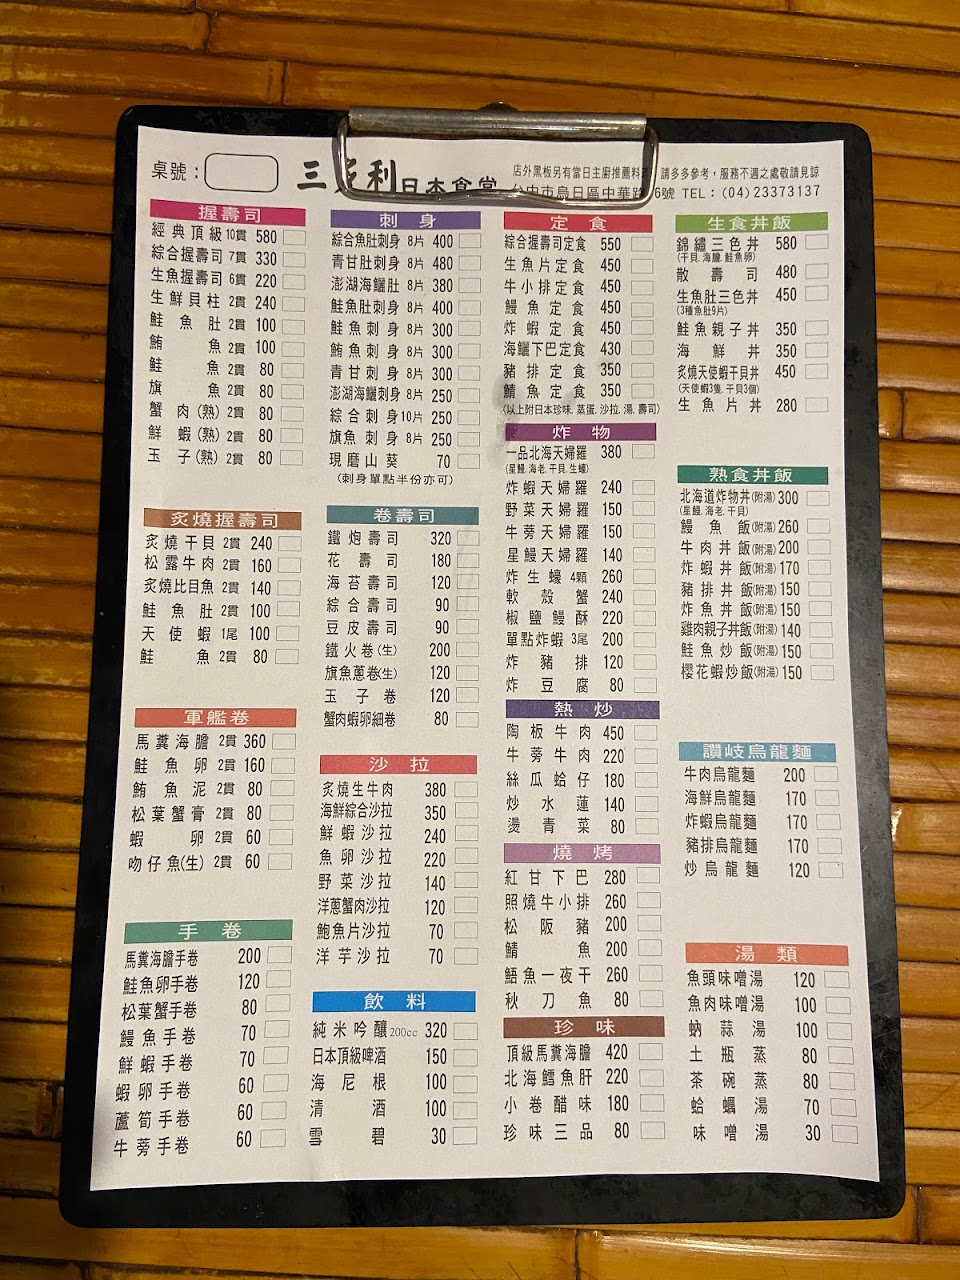 桌號：
三多利日本食堂
店外黑板另有當日主廚推薦料理，請多多參考，服務不週之處敬請見諒
台中市烏日區中華路 6號 TEL：(04)23373137
握壽司
經典頂級10貫 580
綜合握壽司7貫 330
生魚握壽司6貫 220
生鮮貝柱2貫 240
鮭魚肚2貫 100
鮪魚2貫 100
鮭魚2貫 80
旗魚2貫 80
蟹肉(熟)2貫 80
鮮蝦(熟)2貫 80
玉子(熟)2貫 80
炙燒握壽司
炙燒干貝2貫 240
松露牛肉2貫 160
炙燒比目魚2貫 140
鮭魚肚2貫 100
天使蝦1尾 100
鮭魚2貫 80
軍艦卷
馬糞海膽2貫 360
鮭魚卵2貫 160
鮪魚泥2貫 80
松葉蟹膏2貫 80
蝦卵2貫 60
吻仔魚(生)2貫 60
手卷
馬糞海膽手卷 200
鮭魚卵手卷 120
松葉蟹手卷 80
鰻魚手卷 70
鮮蝦手卷 70
蝦卵手卷 60
蘆筍手卷 60
牛蒡手卷 60
刺身
綜合魚肚刺身8片 400
青甘肚刺身8片 480
澎湖海鱺肚8片 380
鮭魚肚刺身8片 400
鮭魚刺身8片 300
鮪魚刺身8片 300
青甘刺身8片 300
澎湖海鱺刺身8片 250
綜合刺身10片 250
旗魚刺身8片 250
現磨山葵 70
(刺身單點半份亦可)
卷壽司
鐵炮壽司 320
花壽司 180
海苔壽司 120
綜合壽司 90
豆皮壽司 90
鐵火卷(生) 200
旗魚蔥卷(生) 120
玉子卷 120
蟹肉蝦卵細卷 80
沙拉
炙燒生牛肉 380
海鮮綜合沙拉 350
鮮蝦沙拉 240
魚卵沙拉 220
野菜沙拉 140
洋蔥蟹肉沙拉 120
鮑魚片沙拉 70
洋芋沙拉 70
飲料
純米吟釀200cc 320
日本頂級啤酒 150
海尼根 100
清酒 100
雪碧 30
定食
綜合握壽司定食 550
生魚片定食 450
牛小排定食 450
鰻魚定食 450
炸蝦定食 450
海鱺下巴定食 430
豬排定食 350
鯖魚定食 350
(以上附日本珍味.蒸蛋.沙拉.湯.壽司)
炸物
一品北海天婦羅 380
(星鰻.海老.干貝.生蠔)
炸蝦天婦羅 240
野菜天婦羅 150
牛蒡天婦羅 150
星鰻天婦羅 140
炸生蠔4顆 260
軟殼蟹 240
椒鹽鰻酥 220
單點炸蝦3尾 200
炸豬排 120
炸豆腐 80
熱炒
陶板牛肉 450
牛蒡牛肉 220
絲瓜蛤仔 180
炒水蓮 140
燙青菜 80
燒烤
紅甘下巴 280
照燒牛小排 260
松阪豬 200
鯖魚 200
鯃魚一夜干 260
秋刀魚 80
珍味
頂級馬糞海膽 420
北海鱈魚肝 220
小卷醋味 180
珍味三品 80
生食丼飯
錦繡三色丼 580
(干貝.海膽.鮭魚卵)
散壽司 480
生魚肚三色丼 450
(3種魚肚9片)
鮭魚親子丼 350
海鮮丼 350
炙燒天使蝦干貝丼 450
(天使蝦3隻.干貝3個)
生魚片丼 280
熟食丼飯
北海道炸物丼(附湯) 300
(星鰻.海老.干貝)
鰻魚飯(附湯) 260
牛肉丼飯(附湯) 200
炸蝦丼飯(附湯) 170
豬排丼飯(附湯) 150
炸魚丼飯(附湯) 150
雞肉親子丼飯(附湯) 140
鮭魚炒飯(附湯) 150
櫻花蝦炒飯(附湯) 150
讚岐烏龍麵
牛肉烏龍麵 200
海鮮烏龍麵 170
炸蝦烏龍麵 170
豬排烏龍麵 170
炒烏龍麵 120
湯類
魚頭味噌湯 120
魚肉味噌湯 100
蚋蒜湯 100
土瓶蒸 80
茶碗蒸 80
蛤蠣湯 70
味噌湯 30